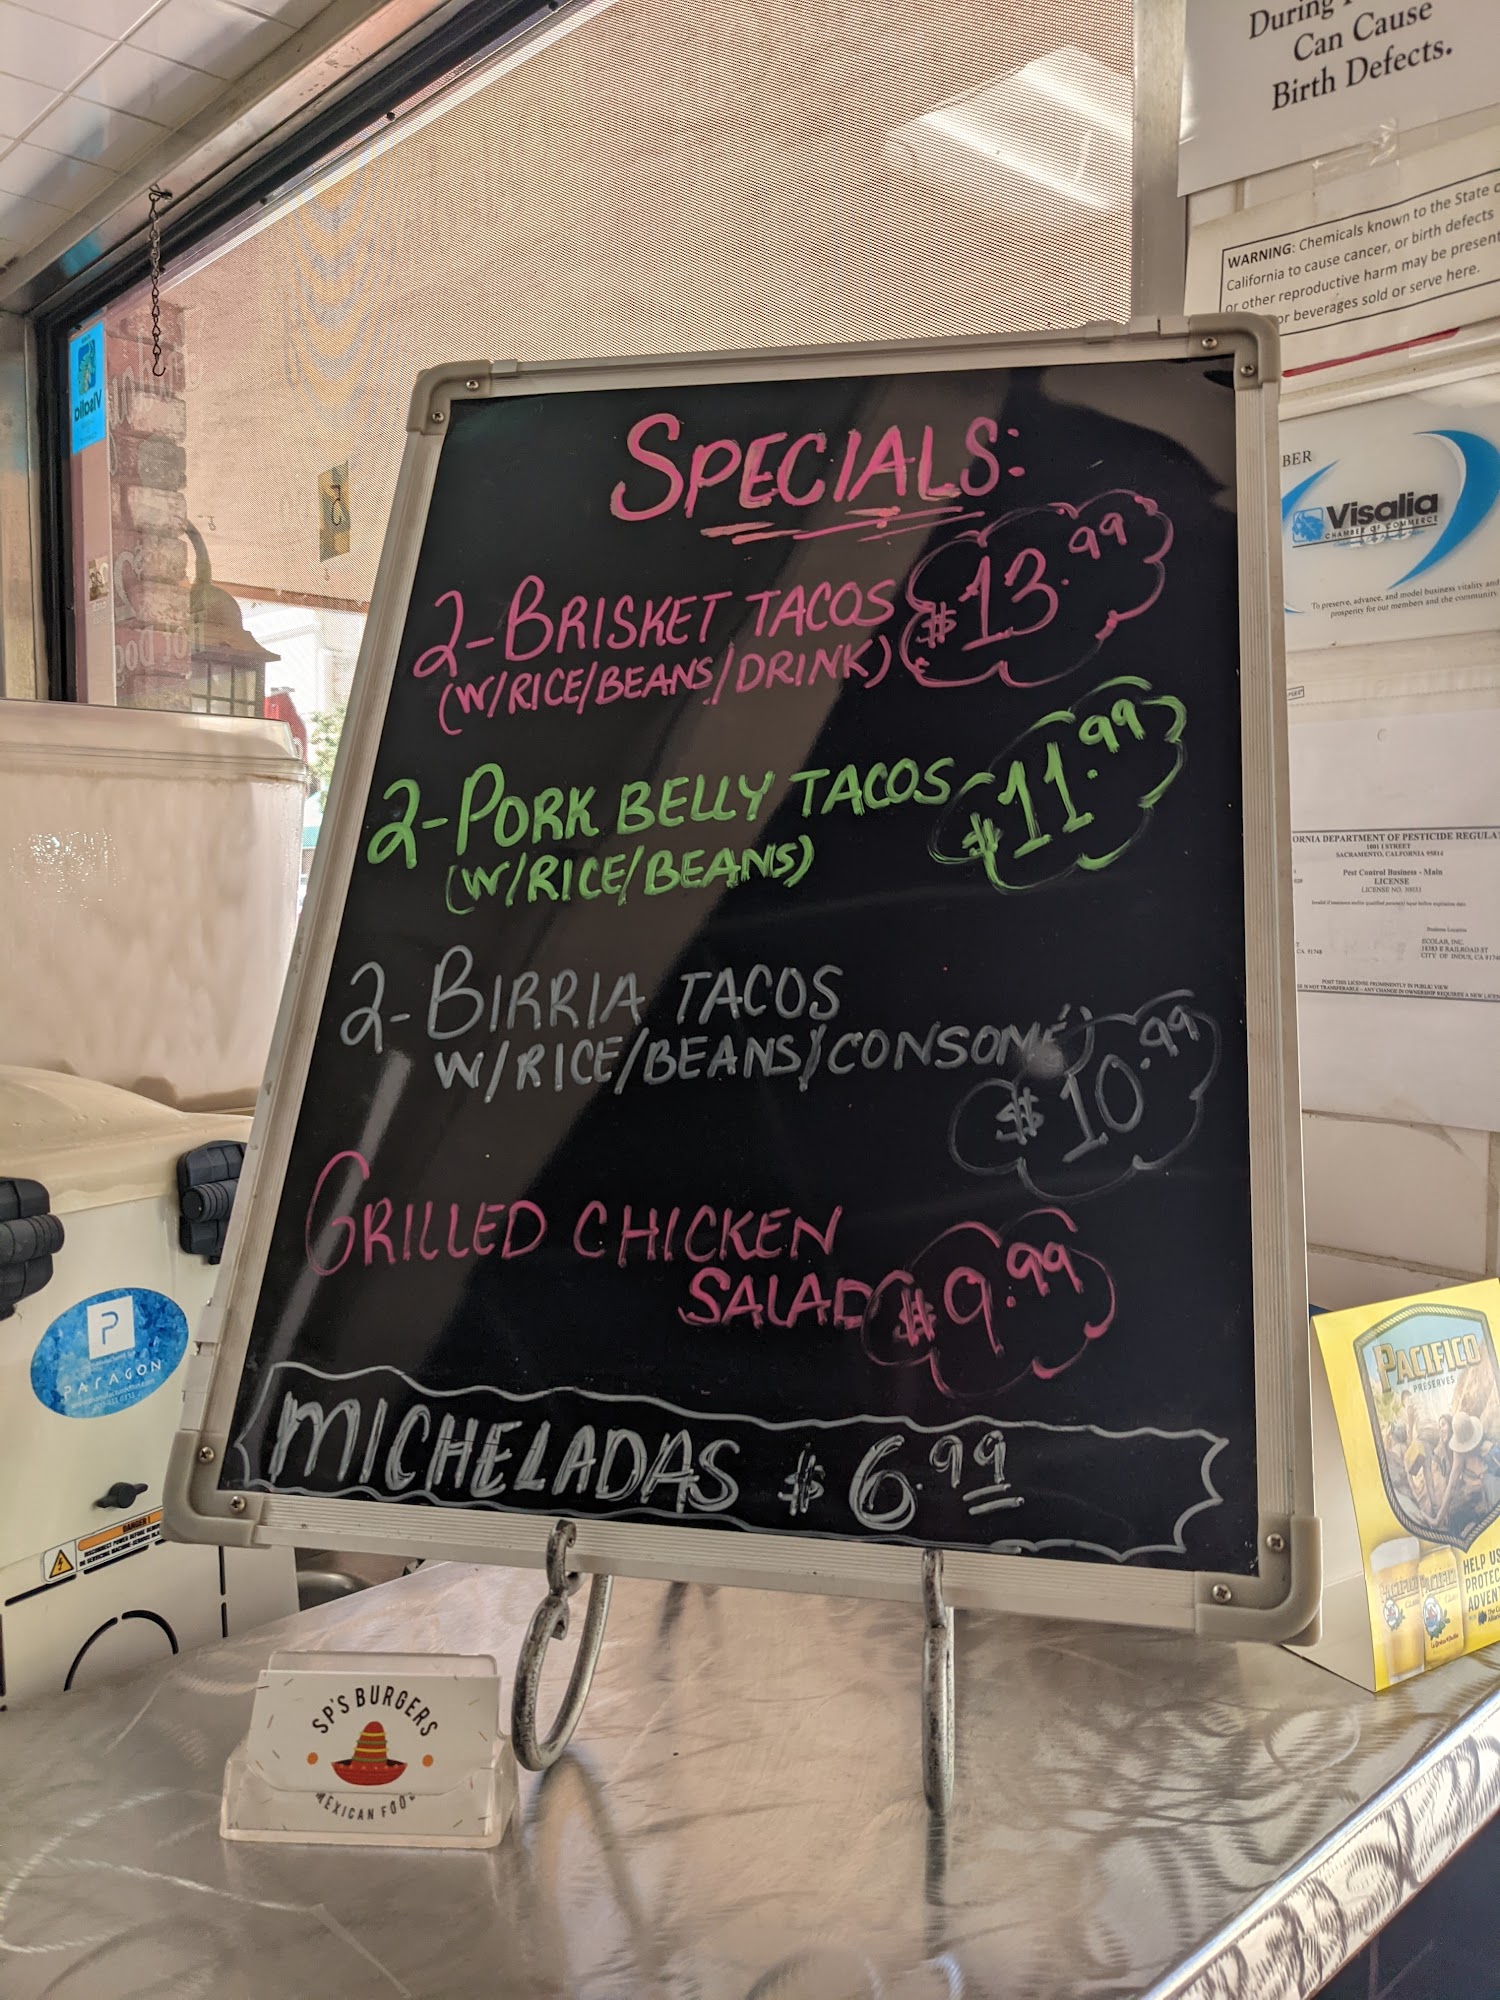 During
Can Cause
Birth Defects.
WARNING: Chemicals known to the State
California to cause cancer, or birth defects
or other reproductive harm may be present
or beverages sold or serve here.
Visalia
SPECIALS:
2-BRISKET TACOS $13.99
(W/RICE/BEANS/DRINK)
2-PORK BELLY TACOS $11.99
(W/RICE/BEANS)
2-BIRRIA TACOS
W/RICE/BEANS/CONSOMÉ
$10.99
GRILLED CHICKEN
SALAD $9.99
MICHELADAS $6.99
BER
Visalia
CHAMBER OF COMMERCE
To preserve, advance, and model business vitality and
prosperity for our members and the community.
ORNIA DEPARTMENT OF PESTICIDE REGULA
1001 I STREET
SACRAMENTO, CALIFORNIA 95814
Pest Control Business - Main
LICENSE
LICENSE NO.
Business Location
ECOLAB, INC.
18383 E RAILROAD ST
CITY OF INDUS, CA
CA 91748
POST THIS LICENSE PROMINENTLY IN PUBLIC VIEW
P
PARAGON
DANGER!
PACIFICO
PRESERVES
HELP US
PROTEC
ADVEN
SP'S BURGERS
MEXICAN FOOD